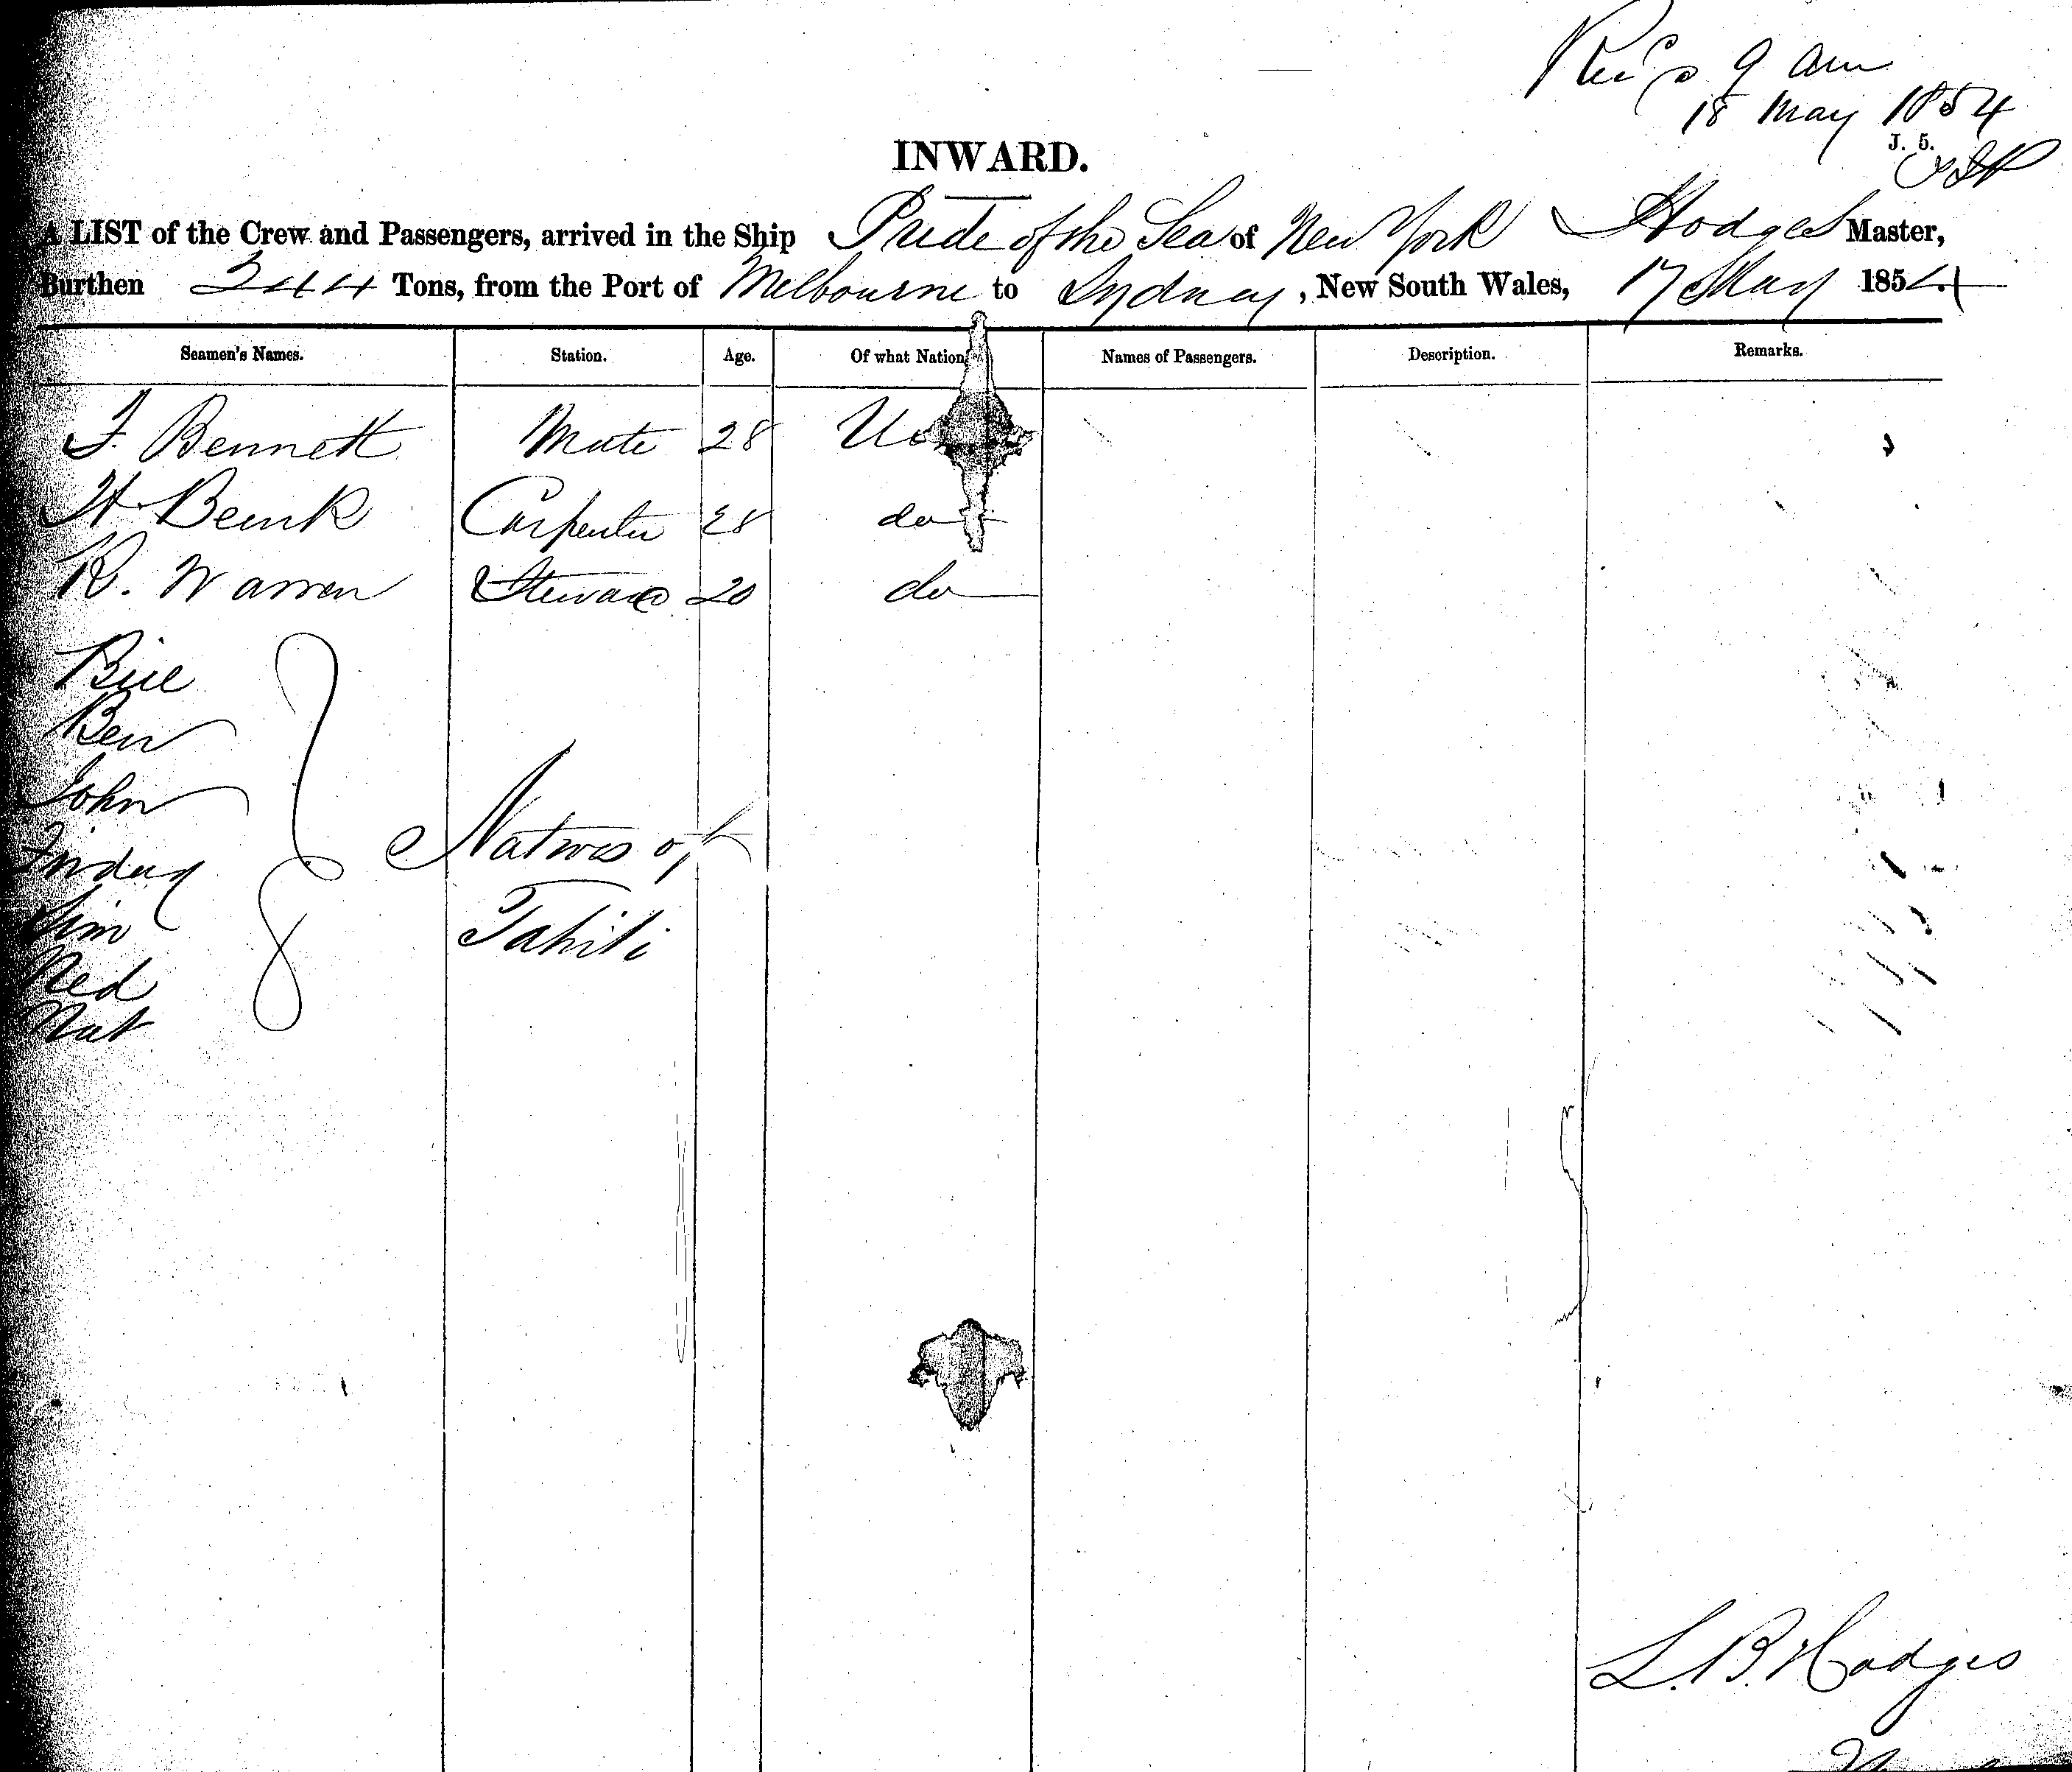 9 am
18 May 1854
J. 5.
INWARD.
A LIST of the Crew and Passengers, arrived in the Ship Pride of the Sea of New York Hodges Master,
Burthen 344 Tons, from the Port of Melbourne to Sydney, New South Wales, 17 May 1854
Seamen's Names. Station. Age. Of what Nation. Names of Passengers. Description. Remarks.
F. Bennett Mate 28
H. Carpenter 28 do
R. Warren Steward 20 do
Bill
Ben
John
Friday
Jim
Ned
Nat
Natives of
Tahiti
L. B. Hodges